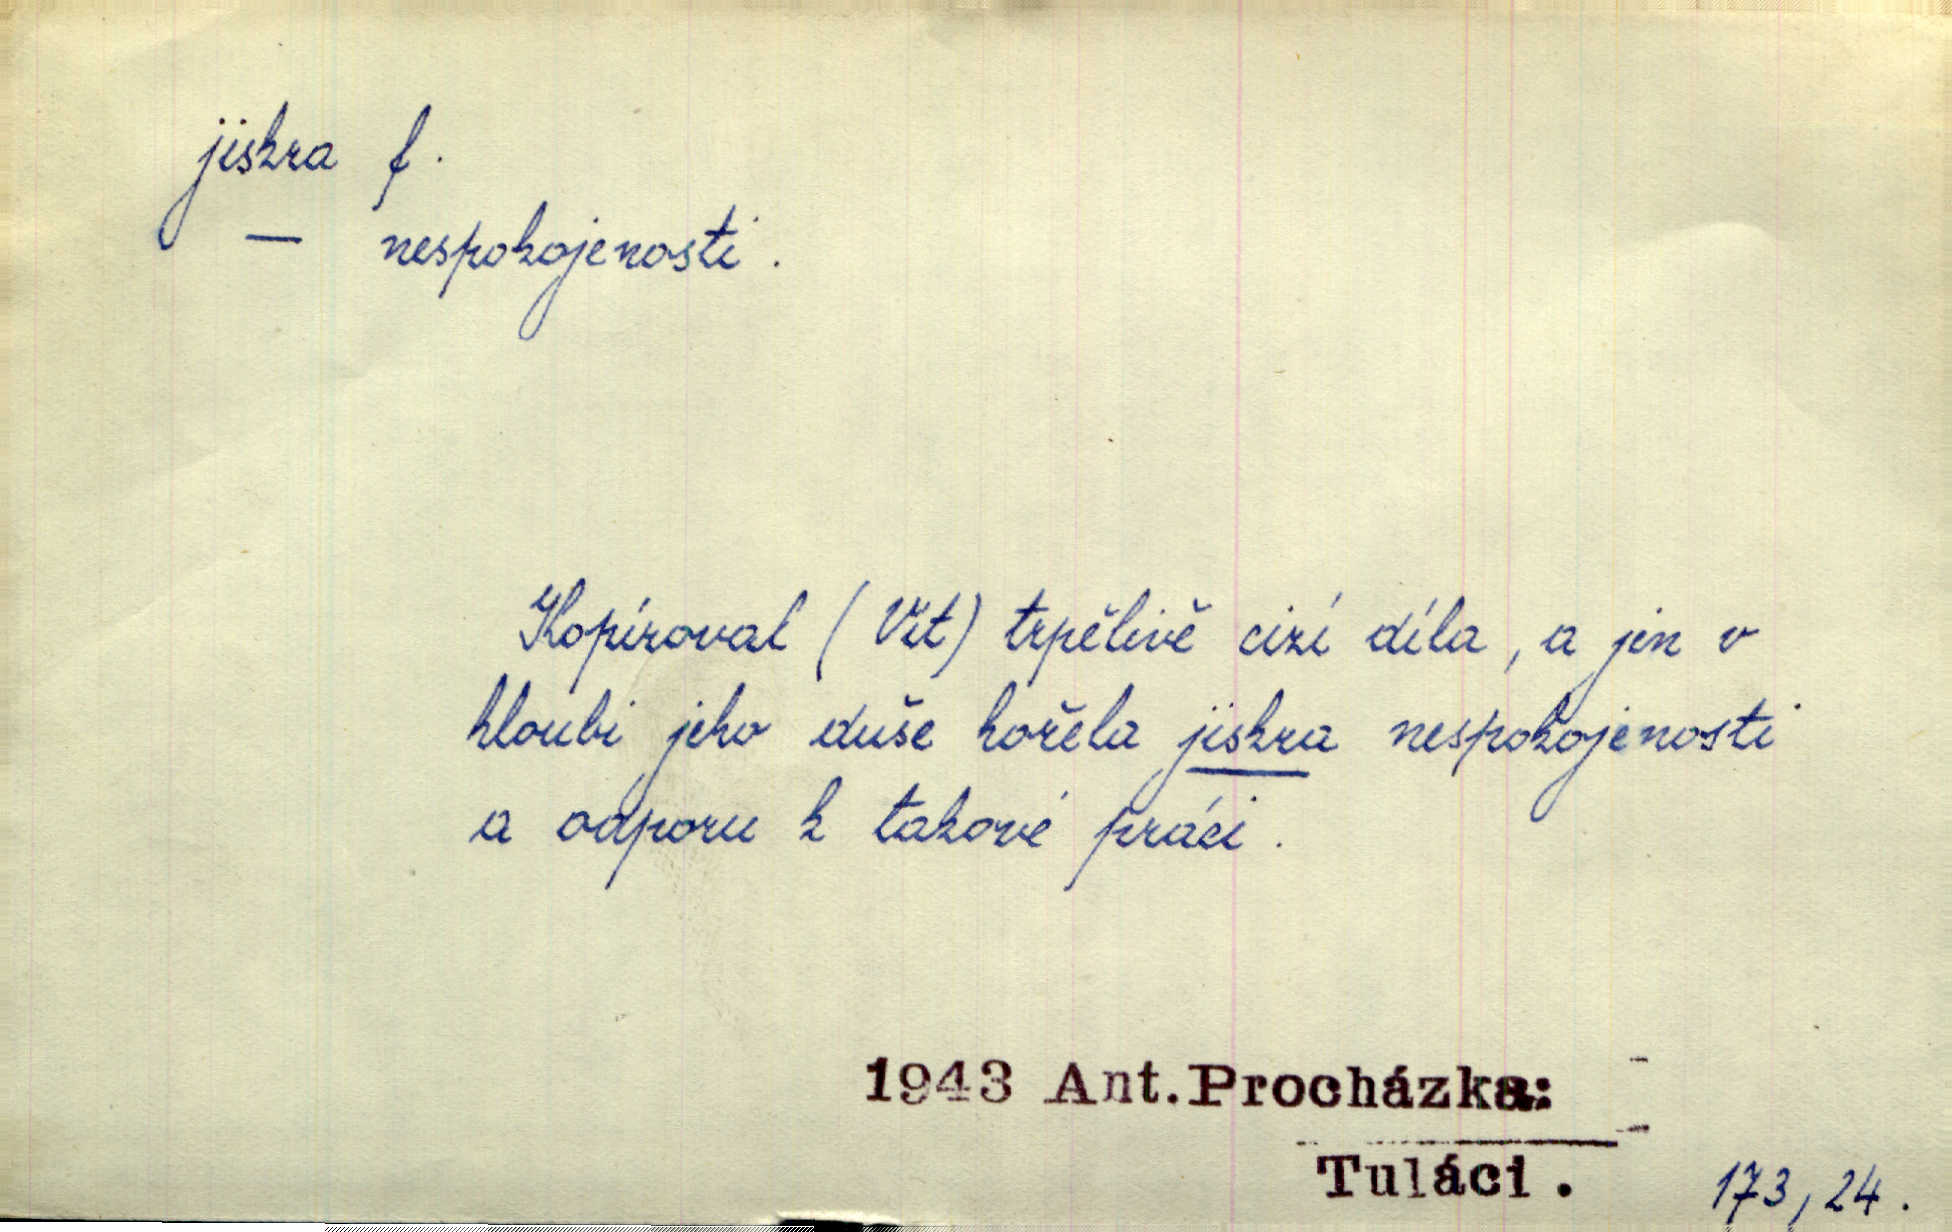 jiskra f.
— nespokojenosti.
Kopíroval (Vít) trpělivě cizí díla, a jen v
hloubi jeho duše hořela jiskra nespokojenosti
a odporu k takové práci.
1943 Ant.Procházka:
Tuláci.
173,24.